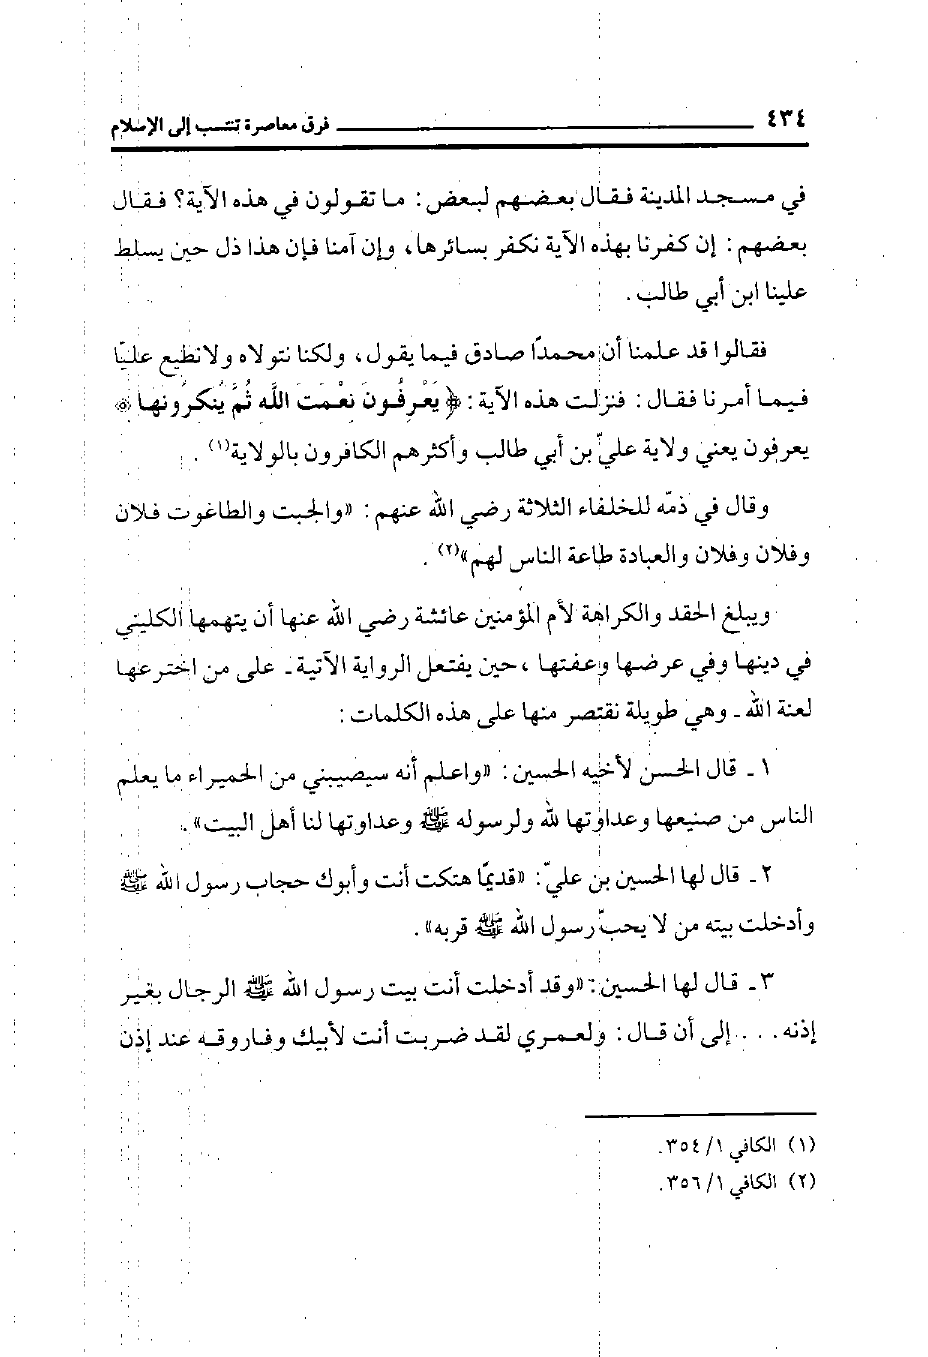 ٤٣٤ فرق معاصرة تنتسب إلى الإسلام
في مسجد المدينة فقال بعضهم لبعض : ما تقولون في هذه الآية؟ فقال
بعضهم : إن كفرنا بهذه الآية نكفر بسائرها، وإن آمنا فإن هذا ذل حين يسلط
علينا ابن أبي طالب .
فقالوا قد علمنا أن محمدًا صادق فيما يقول، ولكنا نتولاه ولا نطيع عليًا
فيما أمرنا فقال : فنزلت هذه الآية : ﴿ يَعْرِفُونَ نِعْمَتَ اللَّه ثُمَّ يُنكِرُونَهَا ﴾
يعرفون يعني ولاية عليّ بن أبي طالب وأكثرهم الكافرون بالولاية(١) .
وقال في ذمّه للخلفاء الثلاثة رضي الله عنهم : «والجبت والطاغوت فلان
وفلان وفلان والعبادة طاعة الناس لهم»(٢) .
ويبلغ الحقد والكراهة لأم المؤمنين عائشة رضي الله عنها أن يتهمها الكليني
في دينها وفي عرضها وعفتها ، حين يفتعل الرواية الآتية ـ على من اخترعها
لعنة الله ـ وهي طويلة نقتصر منها على هذه الكلمات :
١ ـ قال الحسن لأخيه الحسين : «واعلم أنه سيصيبني من الحميراء ما يعلم
الناس من صنيعها وعداوتها لله ولرسوله ﷺ وعداوتها لنا أهل البيت» .
٢ ـ قال لها الحسين بن عليّ : «قديمًا هتكت أنت وأبوك حجاب رسول الله ﷺ
وأدخلت بيته من لا يحبّ رسول الله ﷺ قربه» .
٣ ـ قال لها الحسين : «وقد أدخلت أنت بيت رسول الله ﷺ الرجال بغير
إذنه . . . إلى أن قال : ولعمري لقد ضربت أنت لأبيك وفاروقه عند إذن
(١) الكافي ١/ ٣٥٤.
(٢) الكافي ١/ ٣٥٦.